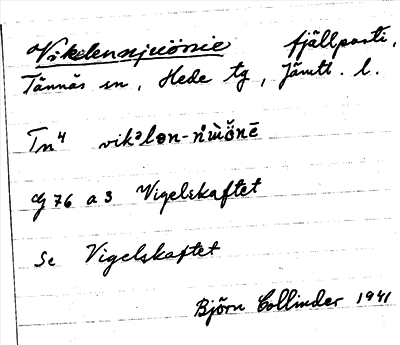 Vikelennjuönie fjällparti,
Tännäs sn, Hede tg, Jämtl. l.
Tn⁴
G 76 a 3 Vigelskaftet
Se Vigelskaftet
Björn Collinder 1941